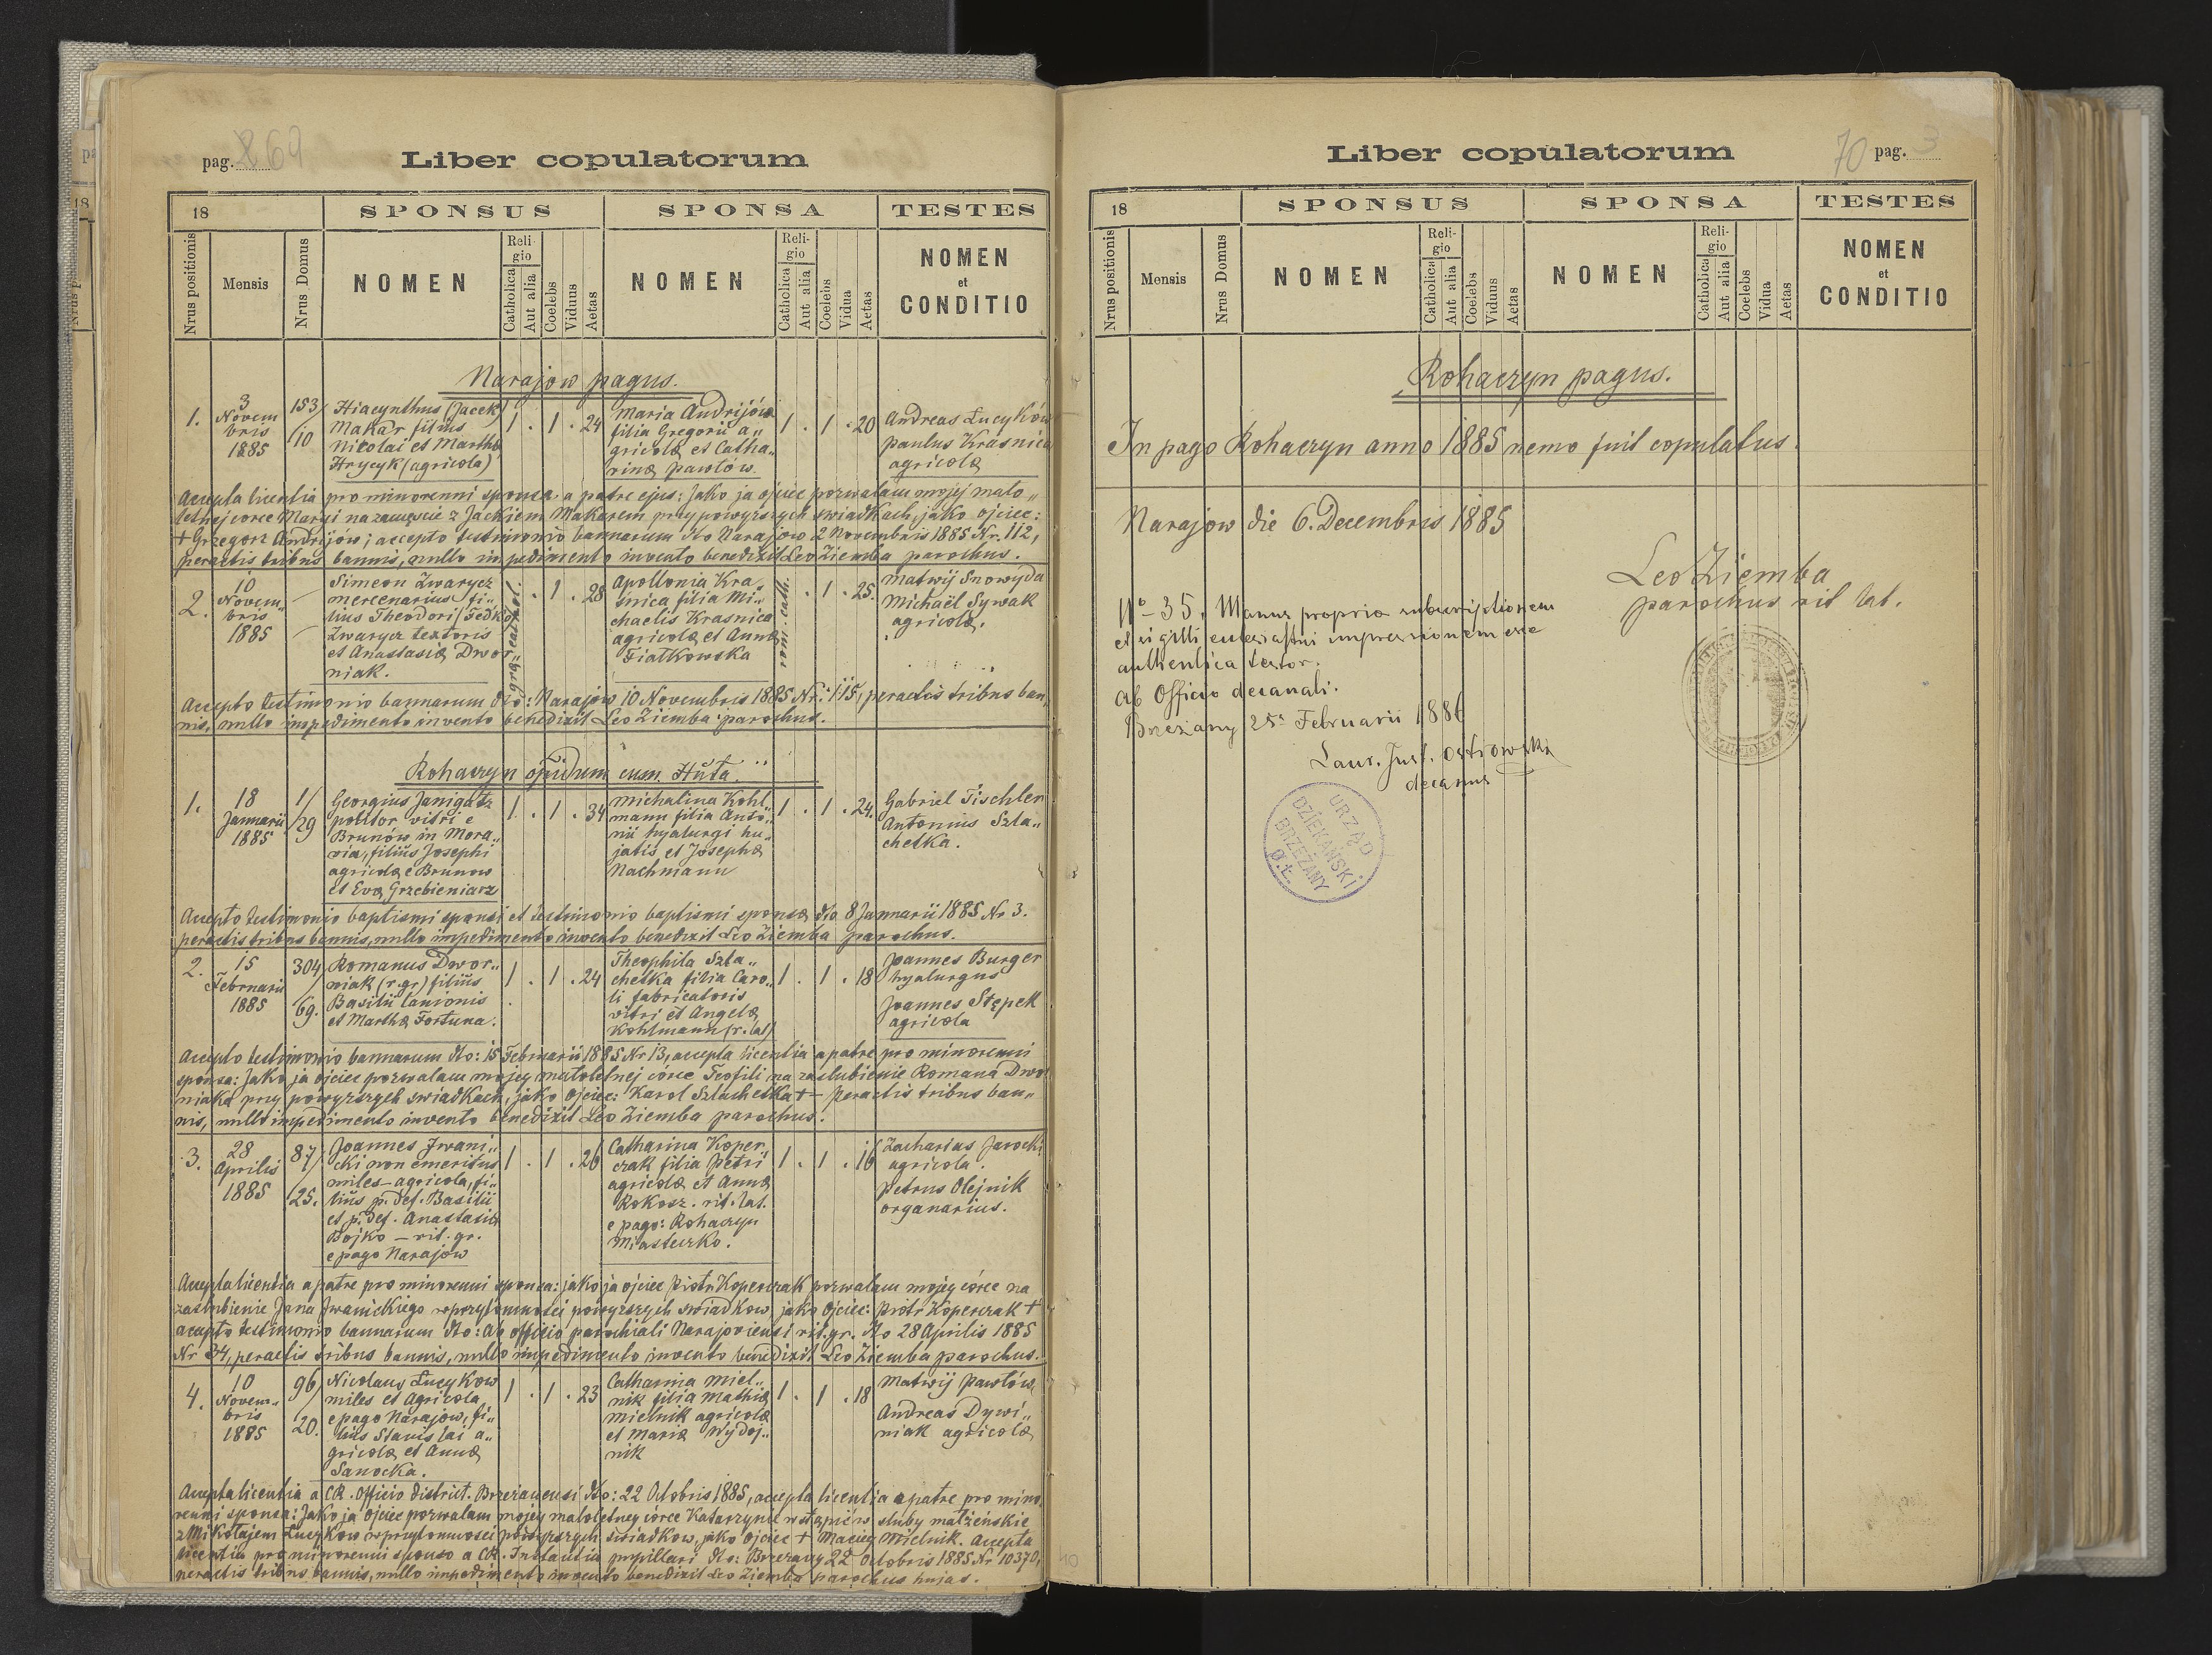 pag. 2 69
Liber copulatorum
18
SPONSUS
SPONSA
TESTES
Nrus positionis
Mensis
Nrus Domus
NOMEN
Religio
Catholica
Aut alia
Coelebs
Viduus
Aetas
NOMEN
Religio
Catholica
Aut alia
Coelebs
Vidua
Aetas
NOMEN
et
CONDITIO
Narajow pagus.
1.
3
Novem
bris
1885
153/
10
Hiacynthus (Jacek)
Makar filius
Nicolai et Martha
Hrycyk (agricola)
1 . 1 . 24
Maria Andrijów
filia Gregorii a„
gricolæ et Catha„
rinæ Pawłów.
1 . 1 . 20
Andreas Łucyków
Paulus Krasnica
agricolæ
Accepta licentia pro minorenni sponsa a patre ejus: Jako ja ojciec pozwalam mojej mało„
letniej córce Maryi na zamęzcie z Jackiem Makarem przy powyrszych swiadkach, jako ojciec:
+ Grzegorz Andrijów; accepto testimonio bannarum dto Narajow 2 Novembris 1885 Nr. 112,
peractis tribus bannis, nullo impedimento invento benedixit Leo Ziemba parochus.
2.
10
Novem„
bris
1885
Simeon Zwarycz
mercenarius fi„
lius Theodori (Fedko)
Zwarycz textoris
et Anastasiæ Dwor„
niak.
. 1 . 28
Apollonia Kra„
snica filia Mi„
chaelis Krasnica
agricolæ et Annæ
Fiałkowska
rom. cath.
. 1 . 25.
Matwij Snowyda
Michaël Sywak
agricolæ.
Accepto testimonio bannarum dto: Narajow 10 Novembris 1885 Nr: 115, peractis tribus ban„
nis, nullo impedimento invento benedixit Leo Ziemba parochus.
Rohaczyn opidum cum Huta
1.
18
Januarii
1885
1/
29
Georgius Janigatz
politor vitri e
Brunów in Mora„
via, filius Josephi
agricolæ e Brunow
et Evæ Grzebieniarz
1 . 1 . 34
Michalina Kohl„
mann filia Anto„
nii hyalurgi hu„
jatis, et Josephæ
Nachmann
1 . 1 . 24.
Gabriel Fischler
Antonius Szla„
chetka.
Accepto testimonio baptismi sponsi et testimonio baptismi sponsæ dto 8 Januarii 1885 Nr 3.
peractis tribus bannis, nullo impedimento invento benedixit Leo Ziemba parochus.
2.
15
Februarii
1885
304/
69.
Romanus Dwor„
niak (r.gr) filius
Basilii lanionis
et Marthæ Fortuna.
1 . 1 . 24
Theophila Szla„
chetka filia Caro„
li fabricatoris
vitri et Angelæ
Kohlmann (r. lat)
1 . 1 . 18
Joannes Burger
hyalurgus
Joannes Stępek
agricola
Accepto testimonio bannarum dto: 15 Februarii 1885 Nr 13, accepta licentia a patre pro minorenni
sponsa: Jako ja ojciec pozwalam mojej małoletnej córce Teofili na zaslubienie Romana Dwor
niaka przy powyrszych swiadkach, jako Ojciec: Karol Szlachetka + peractis tribus ban„
nis, nullo impedimento invento benedixit Leo Ziemba parochus.
3.
28
Aprilis
1885
87/
25.
Joannes Iwani„
cki non emeritus
miles - agricola, fi„
lius p. def. Basilii
et p. def. Anastasiæ
Bojko – rit. gr.
e pago Narajów
1 . 1 . 26
Catharina Koper„
czak filia Petri
agricolæ et Annæ
Rokosz. rit. lat.
e pago: Rohaczyn
Miasteczko.
1 . 1 . 16
Zacharias Jarocki
agricola.
Petrus Olejnik
organarius.
Accepta licentia a patre pro minorenni sponsa: jako ja ojciec Piotr Koperczak pozwalam mojej córce na
zaslubienie Jana Iwanickiego w przytomnosci powyrszych swiadkow, jako Ojciec: Piotr Koperczak +
accepto testimonio bannarum dto: ab officio parochiali Narajoviensi rit. gr. dto 28 Aprilis 1885
Nr 34, peractis tribus bannis, nullo impedimento invento benedixit Leo Ziemba parochus.
4.
10
Novem„
bris
1885
96/
20.
Nicolaus Łucykow
miles et Agricola
e pago Narajow, fi„
lius Stanislai a„
gricolæ et Annæ
Sanocka.
1 . 1 . 23
Catharina Miel„
nik filia Mathiæ
Mielnik agricolæ
et Mariæ Wydoj„
nik
1 . 1 . 18
Matwij Pawłów
Andreas Dywi„
niak agricolæ
Accepta licentia a CR. Officio district. Brzezanensi dto: 22 Octobris 1885, accepta licentia a patre pro mino„
renni sponsa: Jako ja Ojciec pozwalam mojej małoletnej córce Katarzynie wstąpić w sluby małżenskie
z Mikołajem Łucykow w przytomnosci powyrszych swiadkow, jako Ojciec + Maciej Mielnik. Accepta
licentia pro minorenni sponso a CR. Instantia pupillari dto: Brzezany 22 Octobris 1885 Nr 10370,
peractis tribus bannis, nullo impedimento invento benedixit Leo Ziemba parochus hujas.
Liber copulatorum
70 pag. 3
18
SPONSUS
SPONSA
TESTES
Nrus positionis
Mensis
Nrus Domus
NOMEN
Religio
Catholica
Aut alia
Coelebs
Viduus
Aetas
NOMEN
Religio
Catholica
Aut alia
Coelebs
Vidua
Aetas
NOMEN
et
CONDITIO
Rohaczyn pagus.
In pago Rohaczyn anno 1885 nemo fuit copulatus.
Narajow die 6. Decembris 1885
Leo Ziemba
parochus rit lat.
No 35. Manus propria subscriptionem
et sigilli ecclesiastici impressionem esse
authentica testor.
Ab Officio decanali.
Brzezany 25. Februarii 1886
Laur. Just. Ostrowski
decanus
URZĄD
DZIEKAŃSKI
BRZEŻANY
O.Ł.